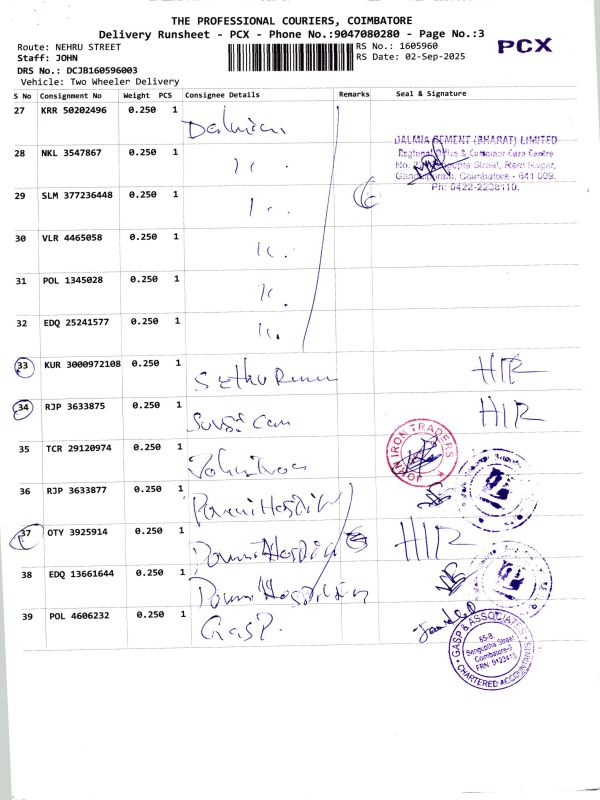 THE PROFESSIONAL COURIERS, COIMBATORE
Delivery Runsheet - PCX - Phone No.:9047080280 - Page No.:3
Route: NEHRU STREET
RS No.: 1605960
PCX
Staff: JOHN
RS Date: 02-Sep-2025
DRS No.: DCJB160596003
Vehicle: Two Wheeler Delivery
S No Consignment No Weight PCS Consignee Details Remarks Seal & Signature
27 KRR 50202496 0.250 1 Dalmia
DALMIA CEMENT (BHARAT) LIMITED
Regional Office & Customer Care Centre
Street, Ram Nagar,
Coimbatore - 641 009.
Ph: 0422-2238110.
28 NKL 3547867 0.250 1 "
29 SLM 377236448 0.250 1 "
6
30 VLR 4465058 0.250 1 "
31 POL 1345028 0.250 1 "
32 EDQ 25241577 0.250 1 "
33 KUR 3000972108 0.250 1 HIR
34 RJP 3633875 0.250 1 HIR
35 TCR 29120974 0.250 1
JOHN IRON TRADERS
36 RJP 3633877 0.250 1
37 OTY 3925914 0.250 1 HIR
38 EDQ 13661644 0.250 1
39 POL 4606232 0.250 1 GASP.
GASP & ASSOCIATES
65-B,
Sengupta Street
Coimbatore-9
CHARTERED ACCOUNTANTS